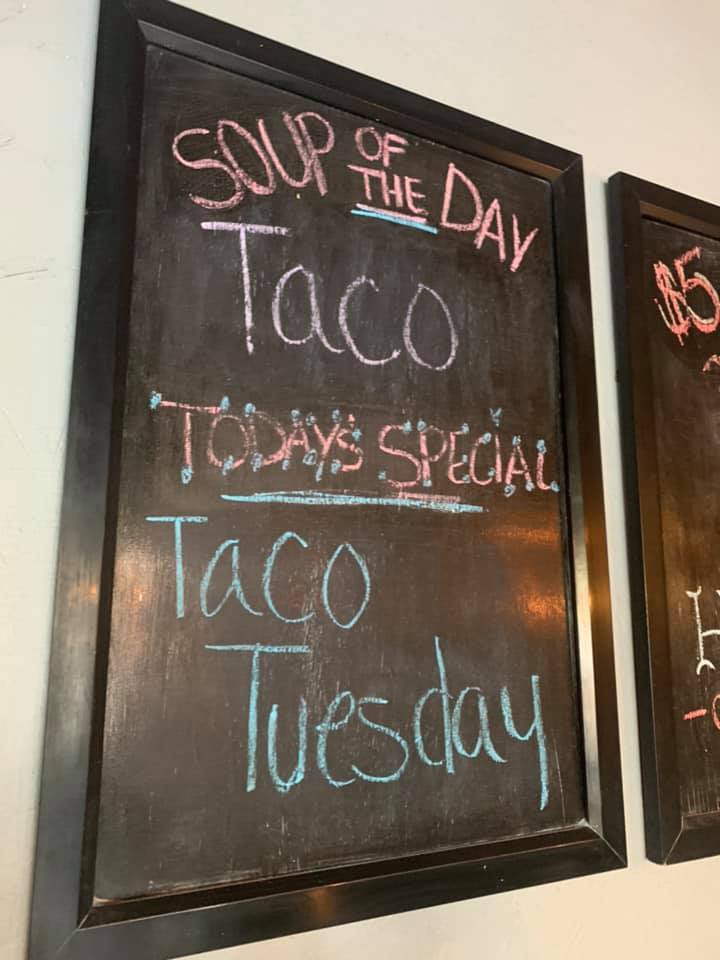 SOUP OF THE DAY
Taco
TODAY'S SPECIAL
Taco
Tuesday
$5